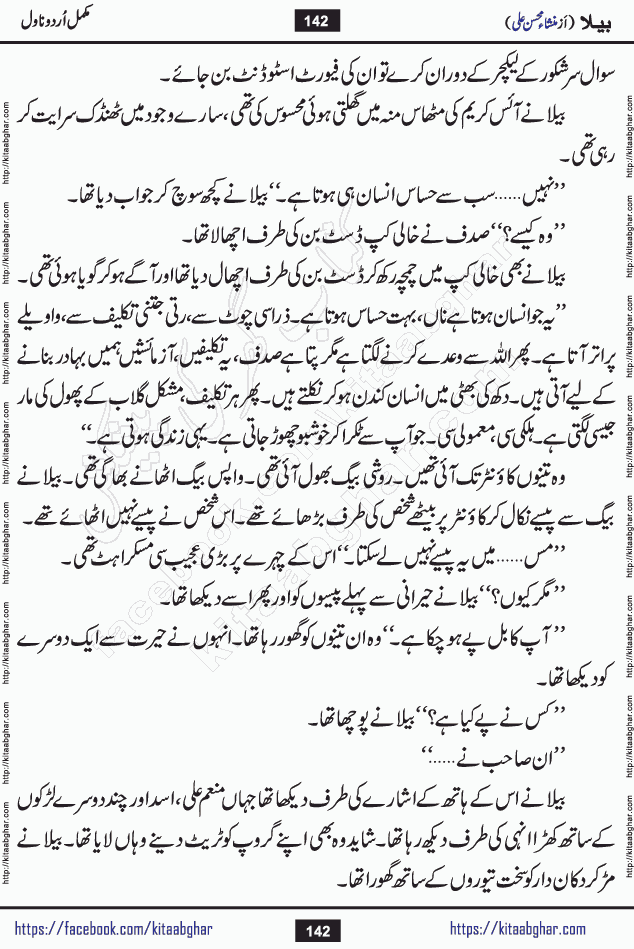 بیلا (از منشاء محسن علی)
142
مکمل اُردو ناول
سوال سر شکور کے لیکچر کے دوران کرے تو ان کی فیورٹ اسٹوڈنٹ بن جائے۔
بیلا نے آئس کریم کی مٹھاس منہ میں گھلتی ہوئی محسوس کی تھی، سارے وجود میں ٹھنڈک سرایت کر
رہی تھی۔
’’نہیں...... سب سے حساس انسان ہی ہوتا ہے۔‘‘ بیلا نے کچھ سوچ کر جواب دیا تھا۔
’’وہ کیسے؟‘‘ صدف نے خالی کپ ڈسٹ بن کی طرف اچھالا تھا۔
بیلا نے بھی خالی کپ میں چمچہ رکھ کر ڈسٹ بن کی طرف اچھال دیا تھا اور آگے ہو کر گویا ہوئی تھی۔
’’یہ جو انسان ہوتا ہے ناں، بہت حساس ہوتا ہے۔ ذرا سی چوٹ سے، رتی جتنی تکلیف سے، واویلے
پر اتر آتا ہے۔ پھر اللہ سے وعدے کرنے لگتا ہے مگر پتا ہے صدف، یہ تکلیفیں، آزمائشیں ہمیں بہادر بنانے
کے لیے آتی ہیں۔ دکھ کی بھٹی میں انسان کندن ہو کر نکلتے ہیں۔ پھر ہر تکلیف، مشکل گلاب کے پھول کی مار
جیسی لگتی ہے۔ ہلکی سی، معمولی سی۔ جو آپ سے ٹکرا کر خوشبو چھوڑ جاتی ہے۔ یہی زندگی ہوتی ہے۔‘‘
وہ تینوں کاؤنٹر تک آئی تھیں۔ روشی بیگ بھول آئی تھی۔ واپس بیگ اٹھانے بھاگی تھی۔ بیلا نے
بیگ سے پیسے نکال کر کاؤنٹر پر بیٹھے شخص کی طرف بڑھائے تھے۔ اس شخص نے پیسے نہیں اٹھائے تھے۔
’’مس...... میں یہ پیسے نہیں لے سکتا۔‘‘ اس کے چہرے پر بڑی عجیب سی مسکراہٹ تھی۔
’’مگر کیوں؟‘‘ بیلا نے حیرانی سے پہلے پیسوں کو اور پھر اسے دیکھا تھا۔
’’آپ کا بل پے ہو چکا ہے۔‘‘ وہ ان تینوں کو گھور رہا تھا۔ انہوں نے حیرت سے ایک دوسرے
کو دیکھا تھا۔
’’کس نے پے کیا ہے؟‘‘ بیلا نے پوچھا تھا۔
’’ان صاحب نے......‘‘
بیلا نے اس کے ہاتھ کے اشارے کی طرف دیکھا تھا جہاں منعم علی، اسد اور چند دوسرے لڑکوں
کے ساتھ کھڑا انہی کی طرف دیکھ رہا تھا۔ شاید وہ بھی اپنے گروپ کو ٹریٹ دینے وہاں لایا تھا۔ بیلا نے
مڑ کر دکان دار کو سخت تیوروں کے ساتھ گھورا تھا۔
https://facebook.com/kitaabghar
142
https://kitaabghar.com
http://kitaabghar.com